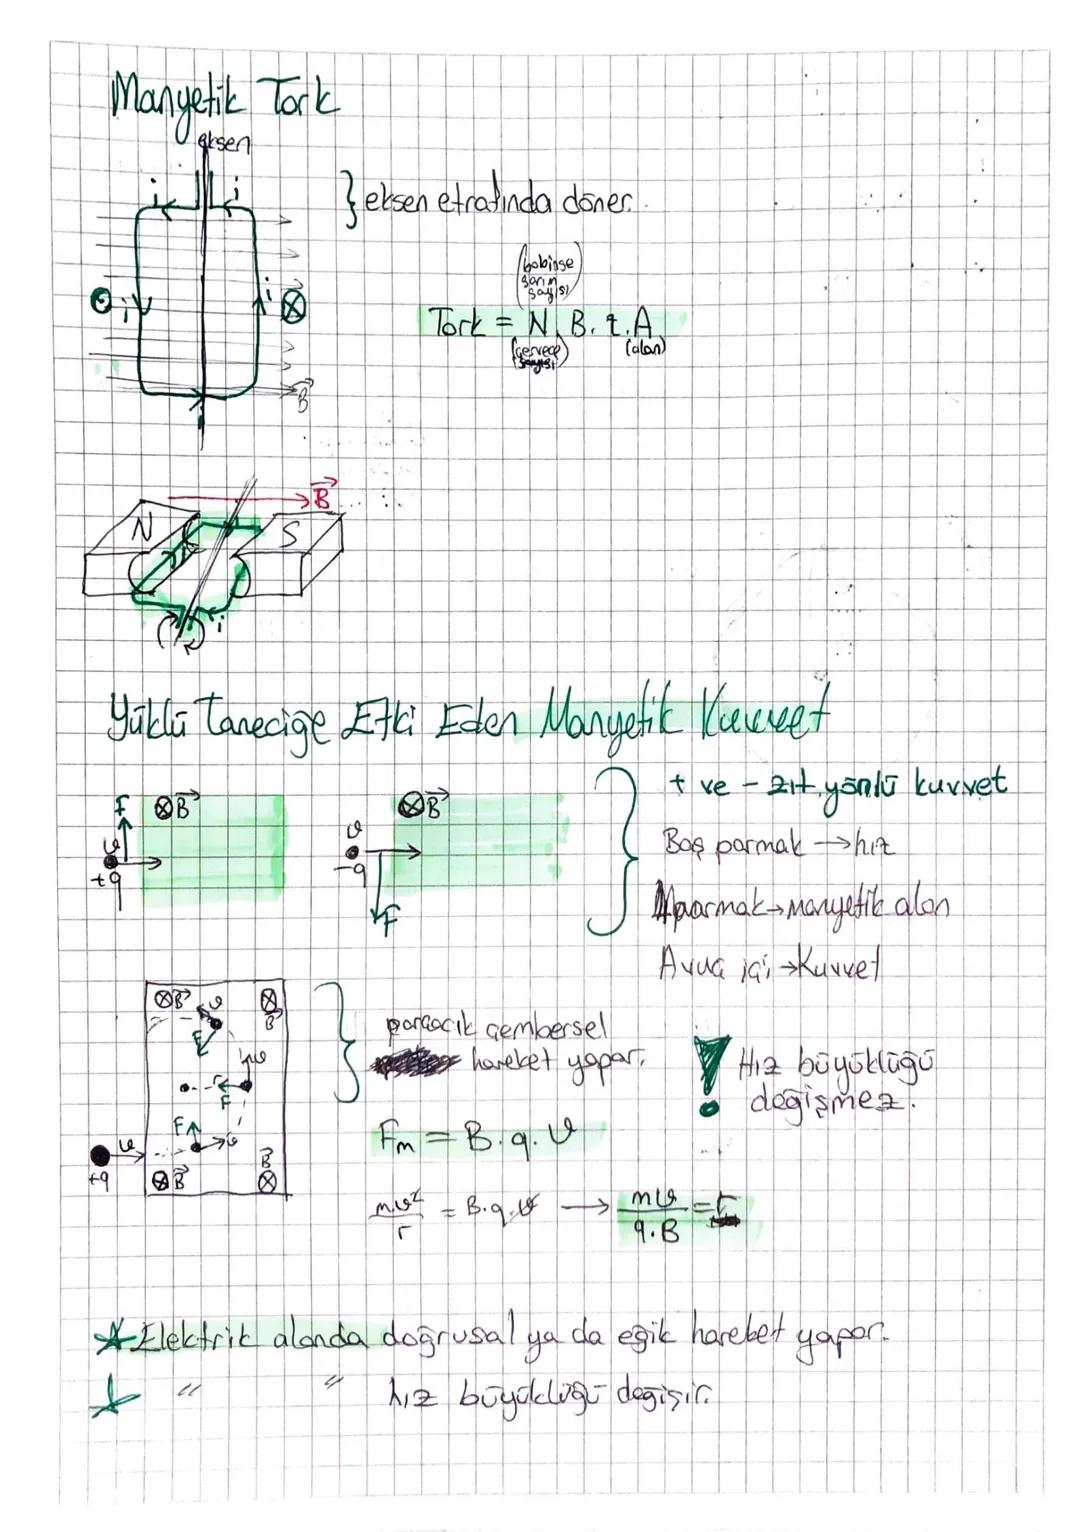 Manyetik Tork
eksen
i i
} eksen etrafında döner.
(bobinse
sarım
sayısı)
Tork = N. B. i. A
(çerçeve
sayısı) (alan)
i i
B
B
N S
i
Yüklü Taneciğe Etki Eden Manyetik Kuvvet
F ⊗B
υ
+q
⊗B
υ
-q
F
+ ve - zıt yönlü kuvvet
Baş parmak → hız
4 parmak → manyetik alan
Avuç içi → Kuvvet
⊗B υ ⊗
B
F
υ
r
F
F
υ υ
+q
⊗B B
⊗
parçacık çembersel
hareket yapar.
! Hız büyüklüğü
değişmez.
Fm = B. q. υ
m.υ²/r = B. q. υ → mυ/q.B = r
* Elektrik alanda doğrusal ya da eğik hareket yapar.
* " " hız büyüklüğü değişir.